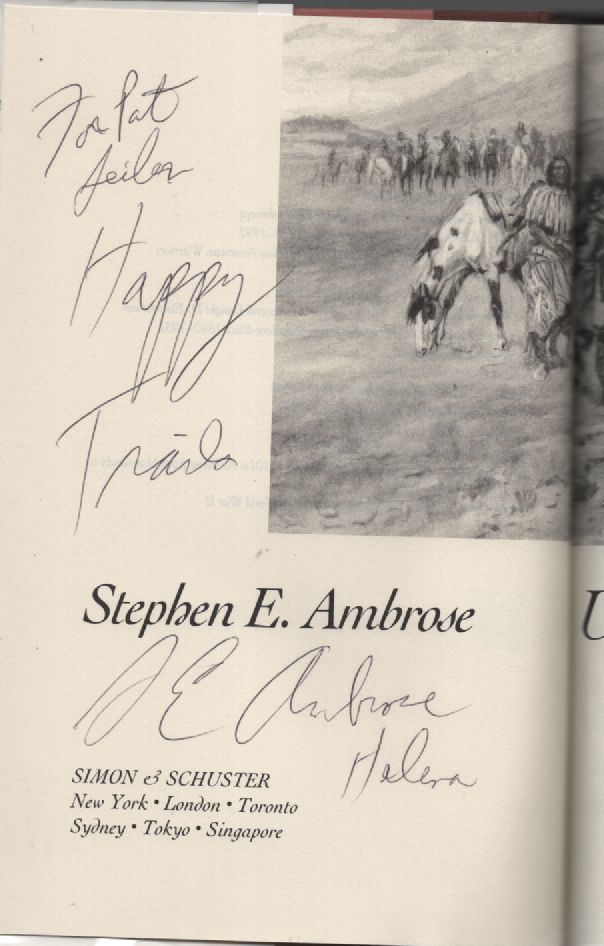 For Pat
Seiler
Happy
Trails
Stephen E. Ambrose
U
S E Ambrose
Helena
SIMON & SCHUSTER
New York • London • Toronto
Sydney • Tokyo • Singapore